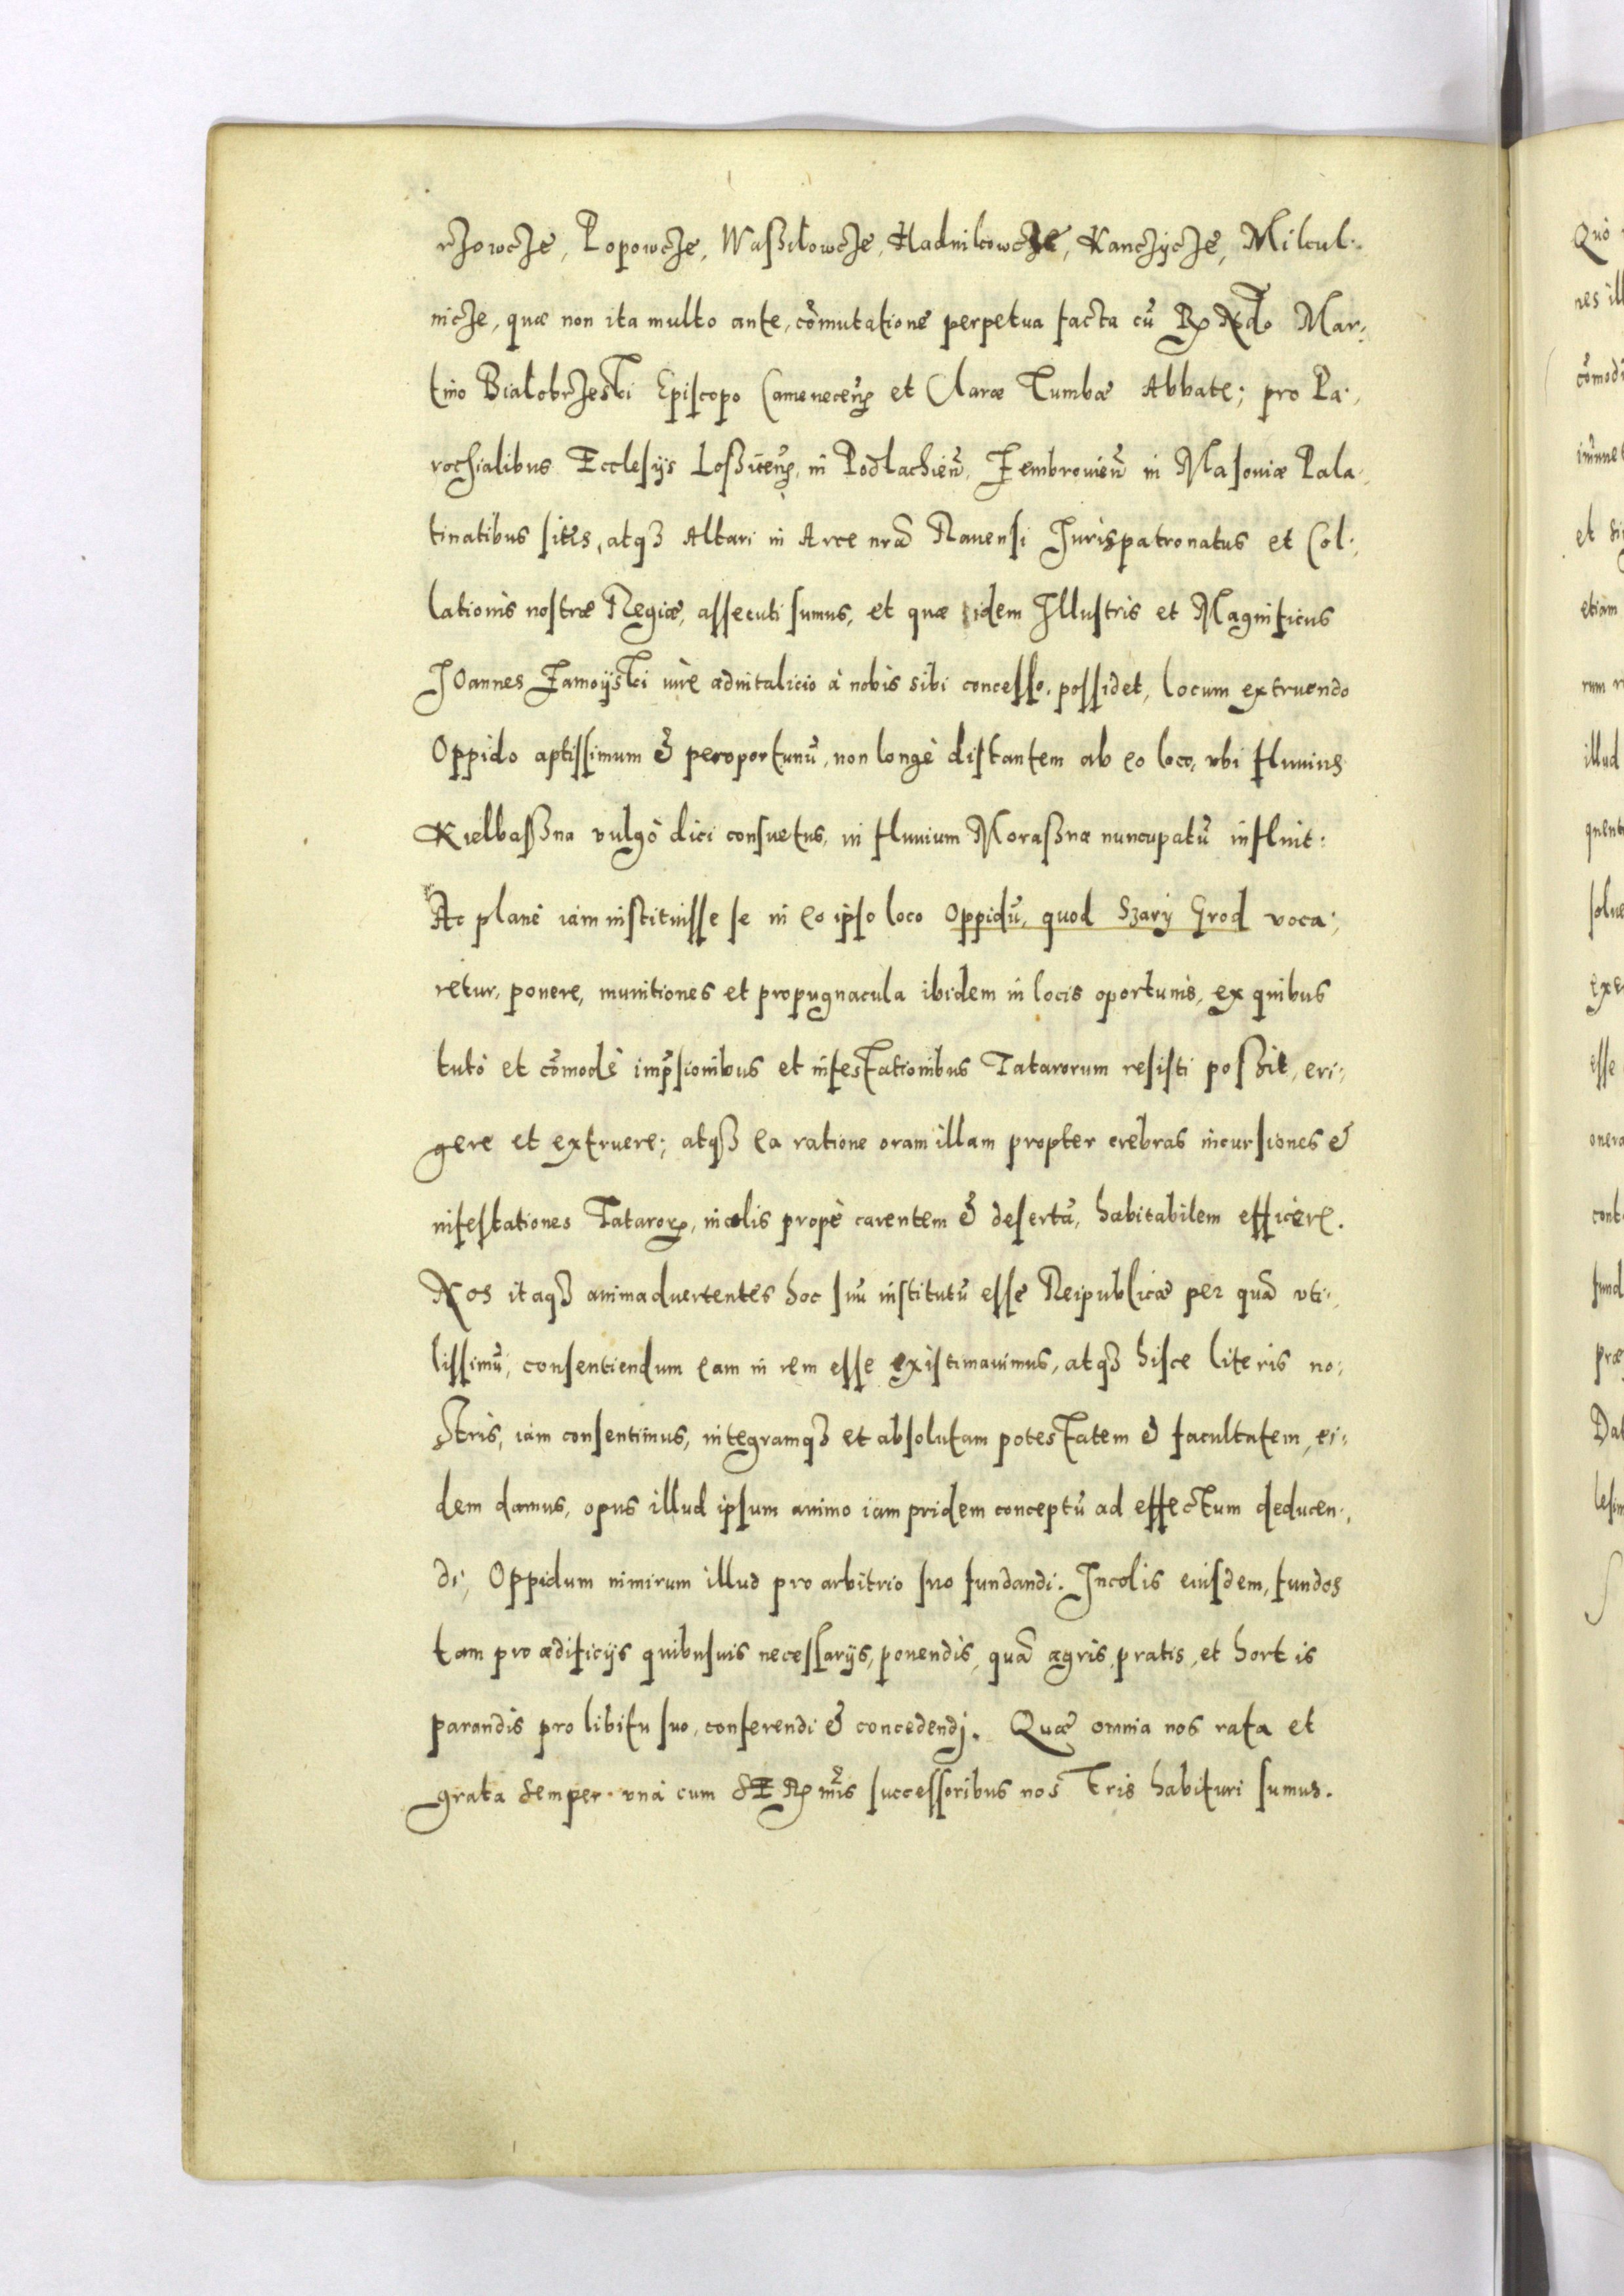 rzowcze, Popowcze, Waßilowcze, Hladnikowcze, Kanczycze, Mikul-
nicze, quæ non ita multo ante, cõmutatione perpetua facta cũ Mar-
tino Bialobrzeski Episcopo Cameneceñ et Claræ Tumbæ Abbate; pro Pa-
rochialibus Ecclesijs Loßiceñ, in Podlachieñ, Zembrouieñ in Masoniæ Pala-
tinatibus sites, atqꝫ Altari in Arce nrã Rauensi Iurispatronatus et Col-
lationis nostræ Regiæ, assecuti sumus, et quæ idem Illustris et Magnificus
Ioannes Zamoyski iure aduitalicio à nobis sibi concesso, possidet, locum extruendo
Oppido aptissimum & peroportunũ, non longè distantem ab eo loco, vbi fluuius
Kielbaßna vulgò dici consuetus, in fluuium Moraßnæ nuncupatũ influit:
Ac planè iam instituisse se in eo ipso loco Oppidũ, quod Szary Grod voca-
retur, ponere, munitiones et propugnacula ibidem in locis oportunis, ex quibus
tutò et cõmodè imp̃sionibus et infestationibus Tatarorum resisti poßit, eri-
gere et extruere; atqꝫ ea ratione oram illam propter crebras incursiones &
infestationes Tataroꝝ, incolis propè carentem & desertã, habitabilem efficere.
Nos itaqꝫ animaduertentes hoc suũ institutũ esse Reipublicæ per quã vti-
lissimũ, consentiendum eam in rem esse existimauimus, atqꝫ hisce literis no-
stris, iam consentimus, integramqꝫ et absolutam potestatem & facultatem, ei-
dem damus, opus illud ipsum animo iam pridem conceptũ ad effectum deducen-
di; Oppidum nimirum illud pro arbitrio suo fundandi. Incolis eiusdem, fundos
tam pro ædificijs quibusuis necessarijs, ponendis, quã agris, pratis, et hortis
parandis pro libitu suo, conferendi & concedendj. Quæ omnia nos rata et
grata semper unà cum successoribus nostris habituri sumus.